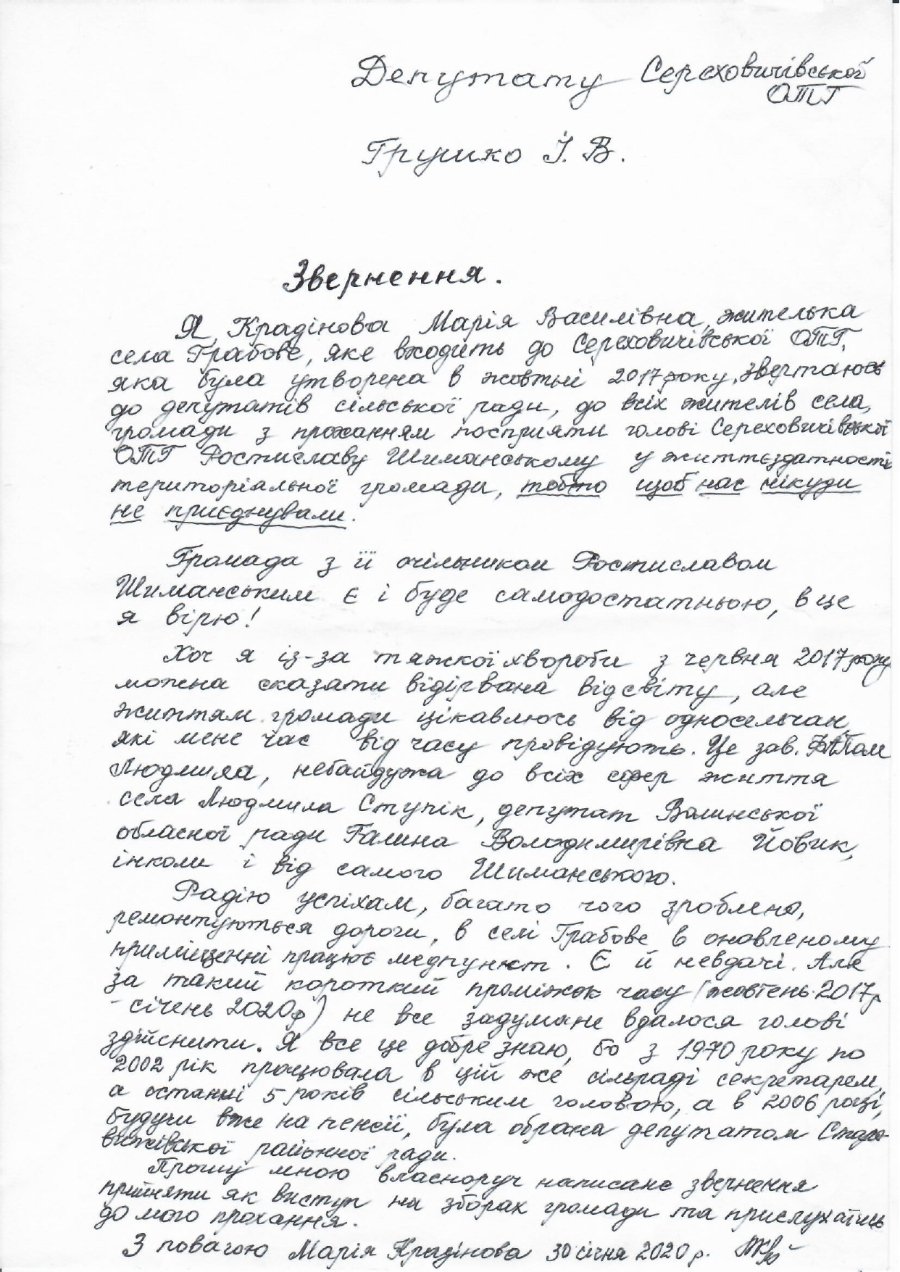 Депутату Сереховичівської
ОТГ
Грушко І. В.
Звернення.
Я Крадінова Марія Василівна, жителька
села Грабове, яке входить до Сереховичівської ОТГ,
яка була утворена в жовтні 2017 року, звертаюсь
до депутатів сільської ради, до всіх жителів села,
громади з проханням посприяти голові Сереховичівської
ОТГ Ростиславу Шиманському у життєздатності
територіальної громади, тобто щоб нас нікуди
не приєднували.
Громада з її очільником Ростиславом
Шиманським є і буде самодостатньою, в це
я вірю!
Хоч я із-за тяжкої хвороби з червня 2017 року
можна сказати відірвана від світу, але
життям громади цікавлюсь від односельчан,
які мене час від часу провідують. Це зав.
Людмила, небайдужа до всіх сфер життя
села Людмила Ступік, депутат Волинської
обласної ради Галина Володимирівка Йовик,
інколи і від самого Шиманського.
Радію успіхам, багато чого зроблено,
ремонтуються дороги, в селі Грабове в оновленому
приміщенні працює медпункт. Є й невдачі. Але
за такий короткий проміжок часу (жовтень 2017р
- січень 2020р) не все задумане вдалося голові
здійснити. Я все це добре знаю, бо з 1970 року по
2002 рік працювала в цій же сільраді секретарем,
а останні 5 років сільським головою, а в 2006 році,
будучи вже на пенсії, була обрана депутатом Старо-
вижівської районної ради.
Прошу мною власноруч написане звернення
прийняти як виступ на зборах громади та прислухатись
до мого прохання.
З повагою Марія Крадінова 30 січня 2020 р.